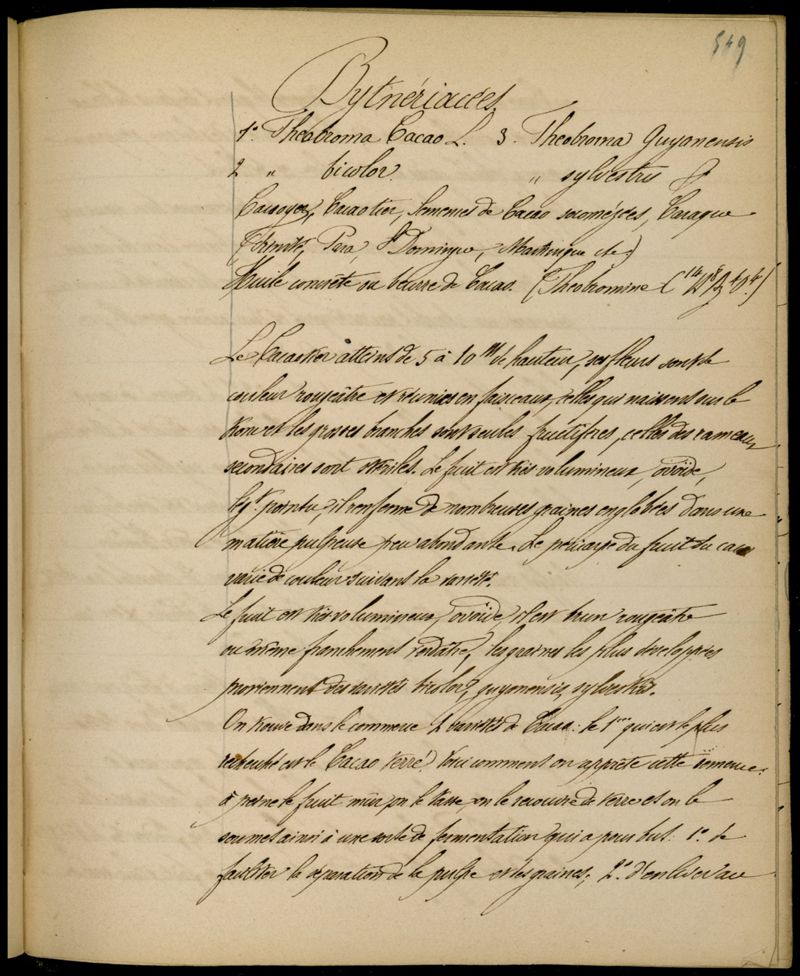 549
Bytnériacées
1° Theobroma Cacao L. 3. Theobroma Guyanensis
2 " bicolor. " sylvestris
Cacaoyer, Cacaotier, Semences de Cacao, Caraque
Trinité, Para, St Domingue, Martinique etc)
Huile concrète ou beurre de Cacao. (Theobromine
Le Cacaotier atteint de 5 à 10 m de hauteur, ses fleurs sont de
couleur rougeâtre et réunies en faisceaux, celles qui naissent sur le
tronc et les grosses branches sont seules fructifères, celles des rameaux
secondaires sont stériles. Le fruit est très volumineux, ovoïde,
pointu, il renferme de nombreuses graines englobées dans une
matière pulpeuse peu abondante. Le péricarpe du fruit du cacao
varie de couleur suivant la variété.
Le fruit est très volumineux, ovoïde, il est brun rougeâtre
ou même franchement verdâtre, les graines les plus développées
proviennent des variétés bicolor, guyanensis, sylvestris.
On trouve dans le commerce 2 variétés de Cacao: le 1er qui est le plus
recherché est le Cacao terré. Voici comment on apprête cette semence:
on prend le fruit mûr, on le recouvre de terre et on le
soumet ainsi à une sorte de fermentation qui a pour but: 1° de
faciliter la séparation de la pulpe et des graines; 2° d'enlever au